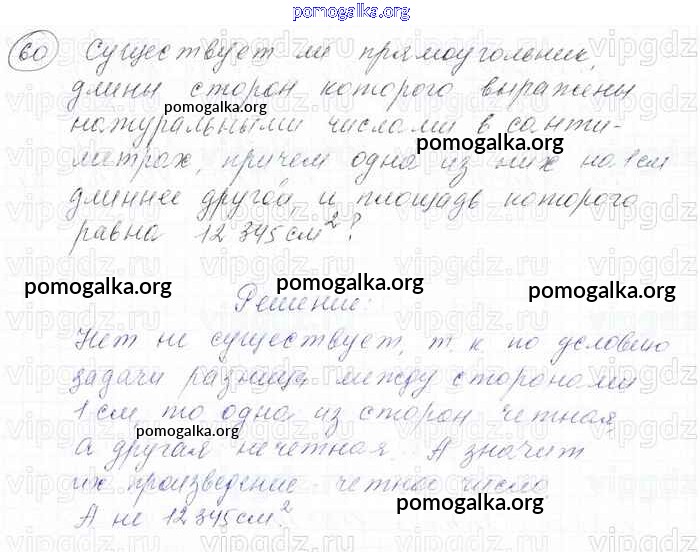 pomogalka.org
60 Существует ли прямоугольник,
длины сторон которого выражены
pomogalka.org
натуральными числами в санти-
метрах, причем одна из них на 1 см
pomogalka.org
длиннее другой, и площадь которого
равна 12 345 см²?
pomogalka.org
pomogalka.org pomogalka.org
Решение:
Нет не существует, т. к. по условию
задачи разница между сторонами
pomogalka.org
1 см, то одна из сторон четная,
pomogalka.org
а другая нечетная. А значит
их произведение - четное число
pomogalka.org
А не 12 345 см².